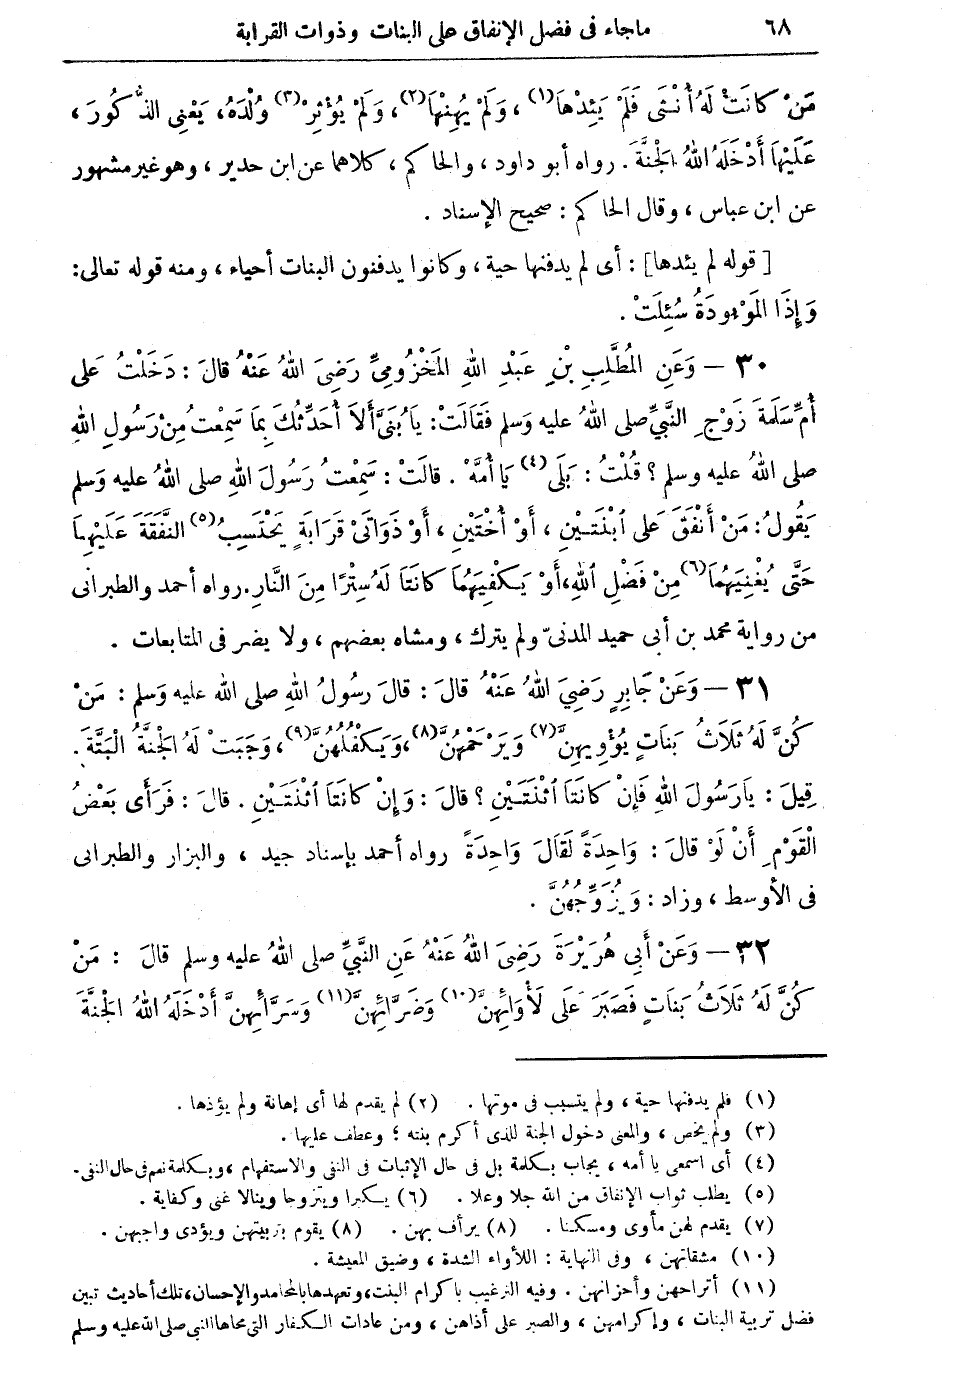 ٦٨ ماجاء فى فضل الإنفاق على البنات وذوات القرابة
مَنْ كانَتْ لَهُ أُنْثَى فَلَمْ يَئِدْهَا(١) ، وَلَمْ يُهِنْهَا(٢)، وَلَمْ يُؤْثِرْ(٣) وُلْدَهُ، يَعْنِى الذُّكُورَ ،
عَلَيْهَا أَدْخَلَهُ اللهُ الجَنَّةَ . رواه أبو داود ، والحاكم ، كلاهما عن ابن حدير ، وهو غير مشهور
عن ابن عباس ، وقال الحاكم : صحيح الإسناد .
[ قوله لم يئدها ] : أى لم يدفنها حية ، وكانوا يدفنون البنات أحياء ، ومنه قوله تعالى:
وَإِذَا المَوْءُودَةُ سُئِلَتْ .
٣٠ — وَعَنِ المُطَّلِبِ بْنِ عَبْدِ اللهِ المَخْزُومِىِّ رَضِىَ اللهُ عَنْهُ قالَ : دَخَلْتُ عَلى
أُمِّ سَلَمَةَ زَوْجِ النَّبِيِّ صلى اللهُ عليه وَسلم فَقَالَتْ: يَا بُنَىَّ أَلَا أُحَدِّثُكَ بِمَا سَمِعْتُ مِنْ رَسُولِ اللهِ
صلى اللهُ عليه وسلم ؟ قُلْتُ : بَلَى(٤) يَا أُمَّهْ . قالَتْ : سَمِعْتُ رَسُولَ اللهِ صلى اللهُ عليه وَسلم
يَقُولُ: مَنْ أَنْفَقَ عَلَى ابْنَتَيْنِ ، أَوْ أُخْتَيْنِ ، أَوْ ذَوَاتَىْ قَرَابَةٍ يَحْتَسِبُ(٥) النَّفَقَةَ عَلَيْهِمَا
حَتَّى يُغْنِيَهُمَا(٦) مِنْ فَضْلِ اللهِ، أَوْ يَكْفِيَهُمَا كَانَتَا لَهُ سِتْرًا مِنَ النَّارِ. رواه أحمد والطبرانى
من رواية محمد بن أبى حميد المدنىّ ولم يترك ، ومشاه بعضهم ، ولا يضر فى المتابعات .
٣١ — وَعَنْ جَابِرٍ رَضِيَ اللهُ عَنْهُ قالَ : قالَ رسُولُ اللهِ صلى الله عليه وَسلم : مَنْ
كُنَّ لَهُ ثَلَاثُ بَنَاتٍ يُؤْوِيهِنَّ(٧) وَيَرْحَمُهُنَّ(٨)، وَيَكْفُلُهُنَّ(٩)، وَجَبَتْ لَهُ الجَنَّةُ الْبَتَّةَ .
قِيلَ : يارَسُولَ اللهِ فَإِنْ كَانَتَا اثْنَتَيْنِ ؟ قالَ : وَإِنْ كانَتَا اثْنَتَيْنِ . قالَ : فَرَأَى بَعْضُ
الْقَوْمِ أَنْ لَوْ قالَ : وَاحِدَةً لَقَالَ وَاحِدَةً رواه أحمد بإسناد جيد ، والبزار والطبرانى
فى الأوسط ، وزاد : وَيُزَوِّجُهُنَّ .
٣٢ — وَعَنْ أَبى هُرَيْرَةَ رَضِىَ اللهُ عَنْهُ عَنِ النَّبِيِّ صلى اللهُ عليه وسلم قالَ : مَنْ
كُنَّ لَهُ ثَلَاثُ بَنَاتٍ فَصَبَرَ عَلَى لَأْوَائِهِنَّ(١٠) وَضَرَّائِهِنَّ(١١) وَسَرَّائِهِنَّ أَدْخَلَهُ اللهُ الجَنَّةَ
(١) فلم يدفنها حية ، ولم يتسبب فى موتها . (٢) لم يقدم لها أى إهانة ولم يؤذها .
(٣) ولم يخص ، والمعنى دخول الجنة للذى أكرم بنته ؛ وعطف عليها .
(٤) أى اسمعى يا أمه ، يجاب بكلمة بل فى حال الإثبات فى النفى والاستفهام ، وبكلمة نعم فى حال النفى.
(٥) يطلب ثواب الإنفاق من الله جلا وعلا . (٦) يكبرا ويتزوجا وينالا غنى وكفاية .
(٧) يقدم لهن مأوى ومسكنا . (٨) يرأف بهن . (٨) يقوم بتربيتهن ويؤدى واجبهن .
(١٠) مشقاتهن ، وفى النهاية : اللأواء الشدة ، وضيق المعيشة .
(١١) أتراحهن وأحزانهن . وفيه الترغيب بإكرام البنت، وتعهدها بالمحامد والإحسان، تلك أحاديث تبين
فضل تربية البنات ، وإكرامهن ، والصبر على أذاهن ، ومن عادات الكفار التى محاها النبي صلى الله عليه وسلم